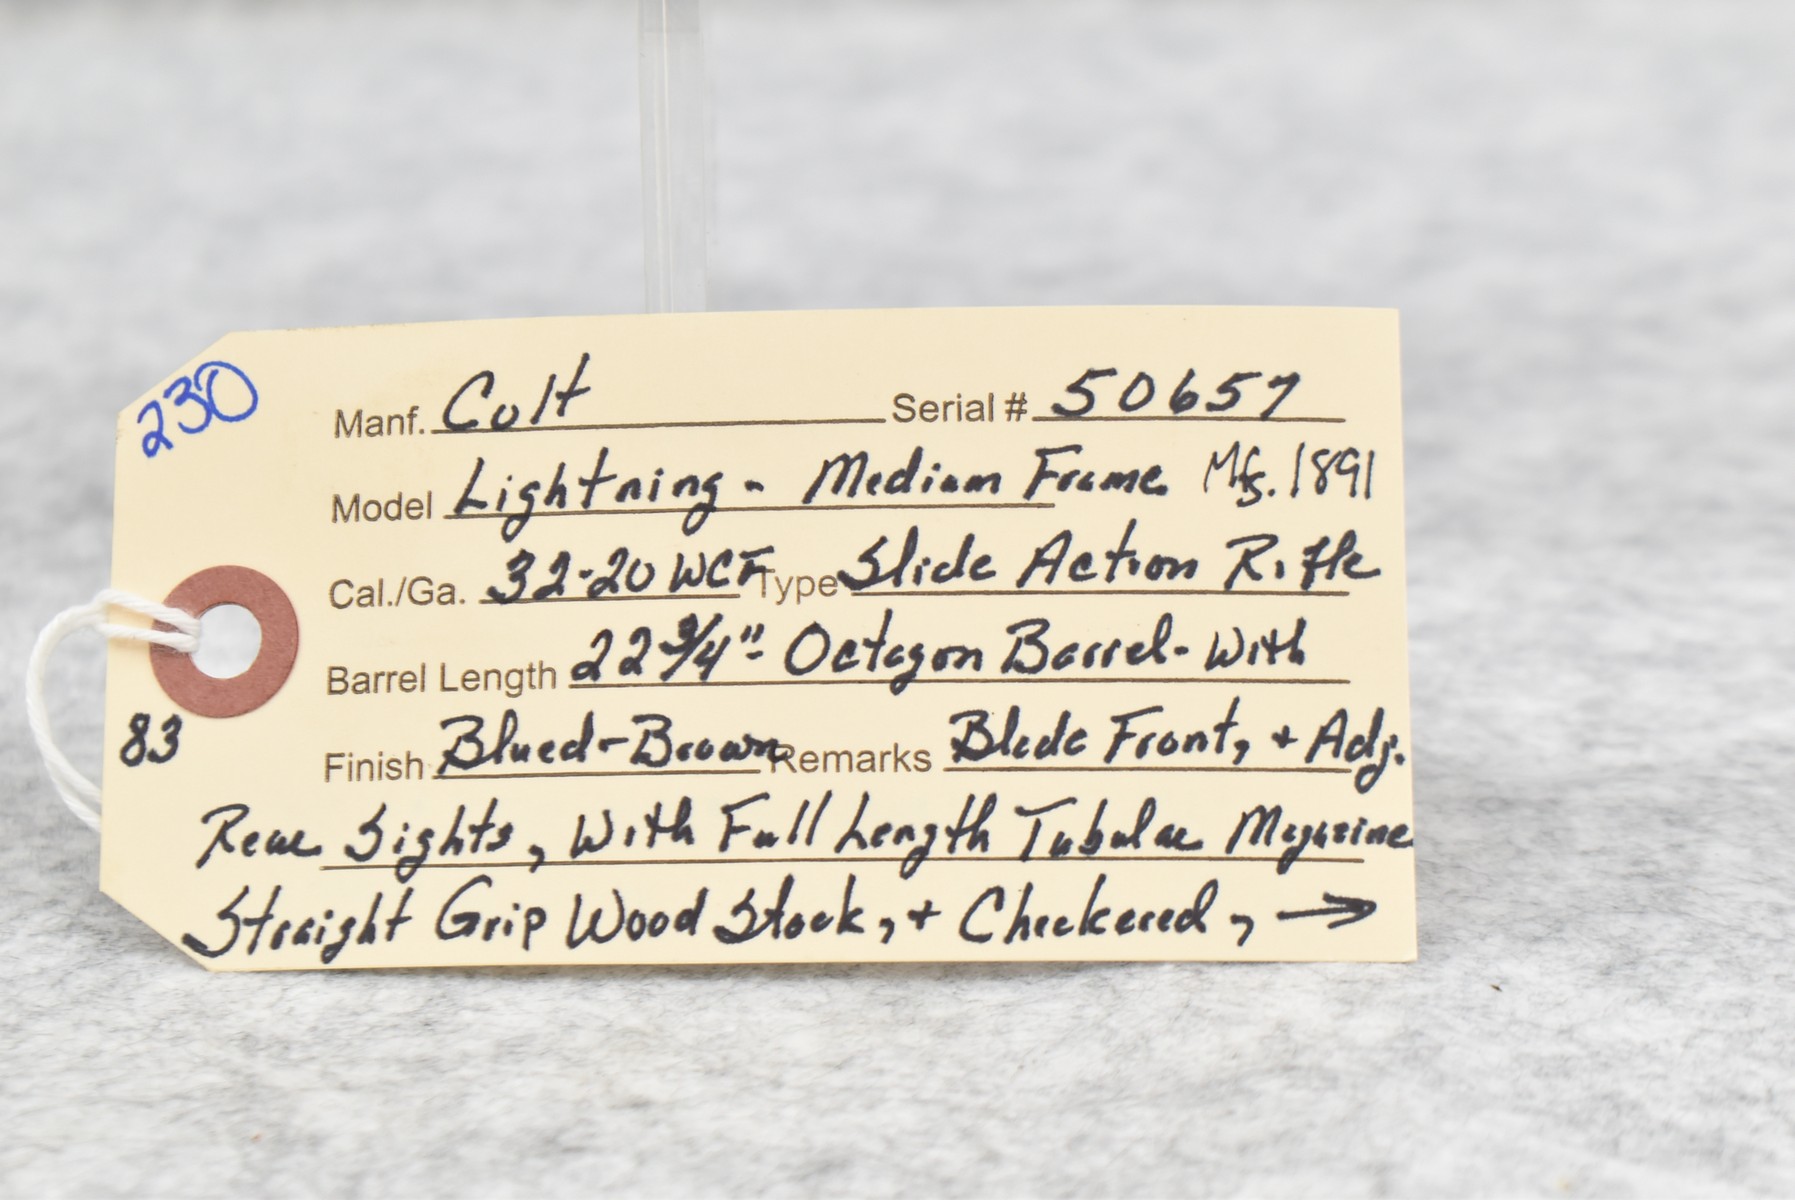 230
Manf. Colt Serial # 50657
Model Lightning - Medium Frame Mfg. 1891
Cal./Ga. 32-20 WCF Type Slide Action Rifle
Barrel Length 22 3/4" - Octagon Barrel - With
83
Finish Blued - Brown Remarks Blade Front, + Adj.
Rear Sights, With Full Length Tubular Magazine
Straight Grip Wood Stock, + Checkered, →